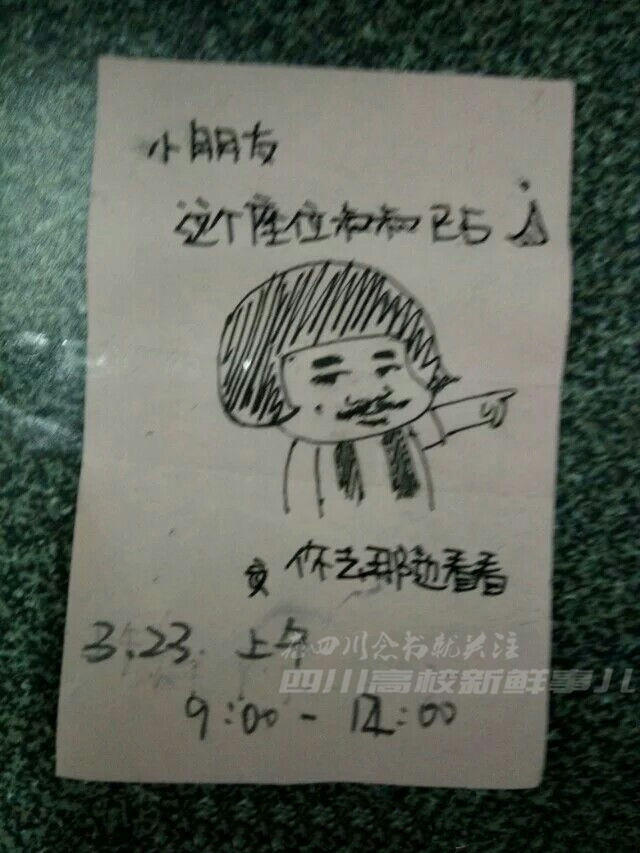 小朋友
这个座位叔叔已占
你去那边看看
3.23. 上午
在四川念书就关注
四川高校新鲜事儿
9:00 - 12:00